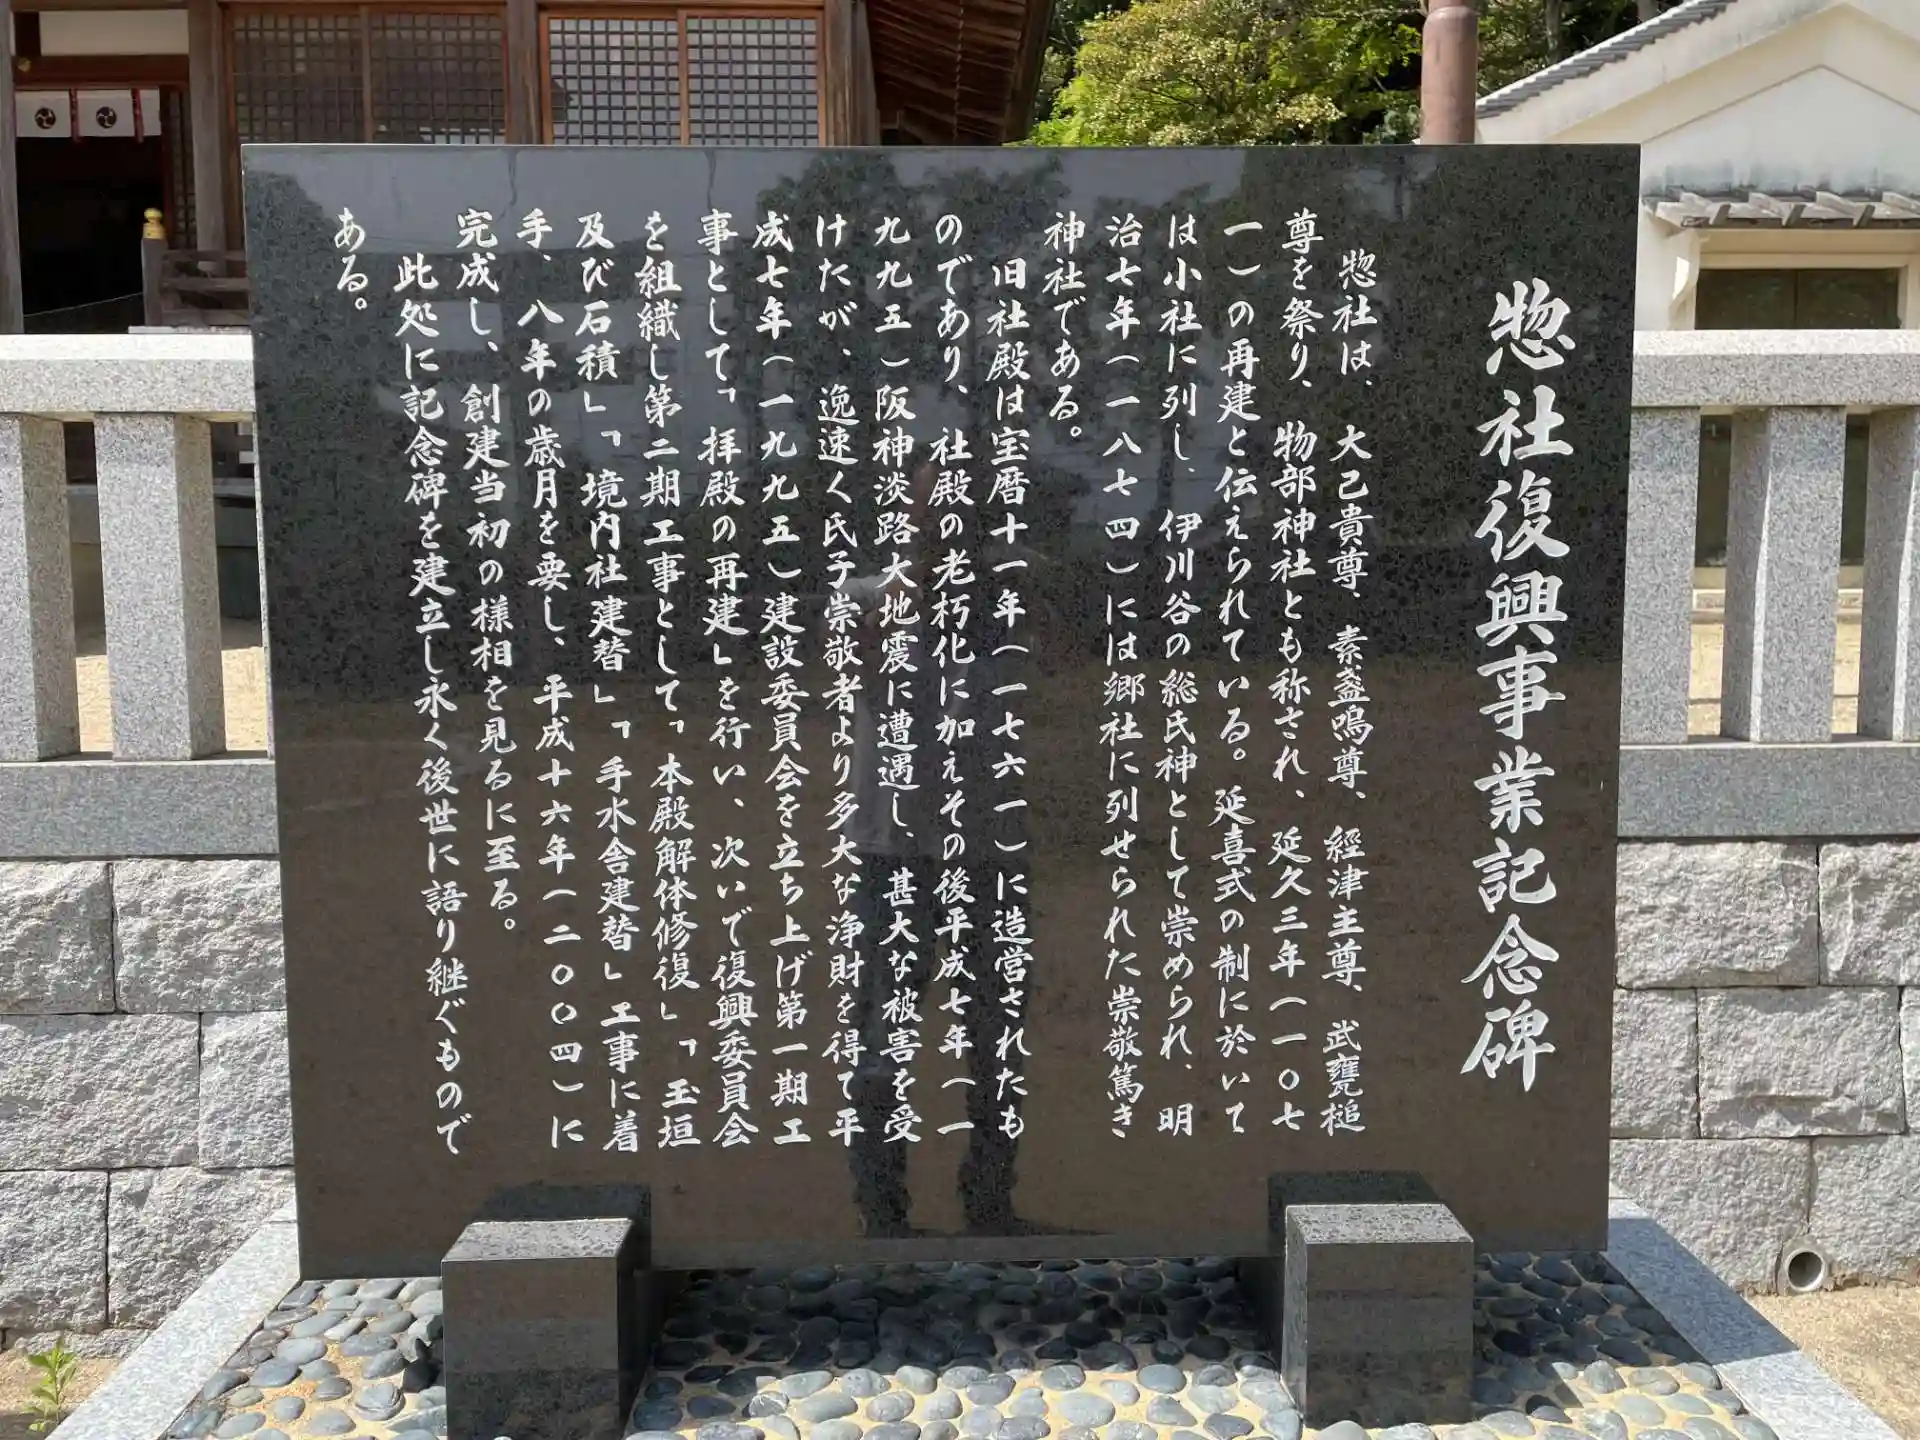 惣社復興事業記念碑
惣社は、大己貴尊、素盞嗚尊、經津主尊、武甕槌
尊を祭り、物部神社とも称され、延久三年(一〇七
一)の再建と伝えられている。延喜式の制に於いて
は小社に列し、伊川谷の総氏神として崇められ、明
治七年(一八七四)には郷社に列せられた崇敬篤き
神社である。
旧社殿は宝暦十一年(一七六一)に造営されたも
のであり、社殿の老朽化に加えその後平成七年(一
九九五)阪神淡路大地震に遭遇し、甚大な被害を受
けたが、逸速く氏子崇敬者より多大な浄財を得て平
成七年(一九九五)建設委員会を立ち上げ第一期工
事として「拝殿の再建」を行い、次いで復興委員会
を組織し第二期工事として「本殿解体修復」「玉垣
及び石積」「境内社建替」「手水舎建替」工事に着
手、八年の歳月を要し、平成十六年(二〇〇四)に
完成し、創建当初の様相を見るに至る。
此処に記念碑を建立し永く後世に語り継ぐもので
ある。